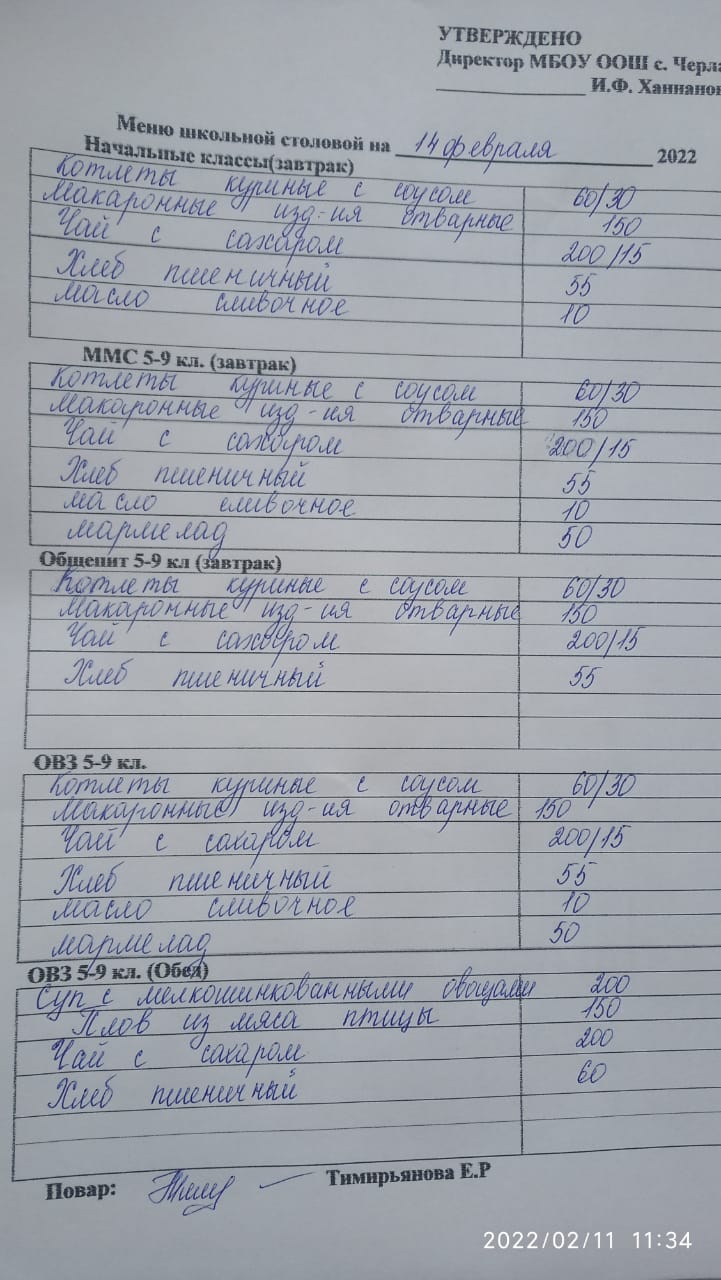 УТВЕРЖДЕНО
Директор МБОУ ООШ с. Черла
И.Ф. Ханнанов
Меню школьной столовой на 14 февраля 2022
Начальные классы(завтрак)
Котлеты куриные с соусом 60/30
Макаронные изд-ия отварные 150
Чай с сахаром 200/15
Хлеб пшеничный 55
Масло сливочное 10
ММС 5-9 кл. (завтрак)
Котлеты куриные с соусом 60/30
Макаронные изд-ия отварные 150
Чай с сахаром 200/15
Хлеб пшеничный 55
масло сливочное 10
мармелад 50
Общепит 5-9 кл (завтрак)
Котлеты куриные с соусом 60/30
Макаронные изд-ия отварные 150
Чай с сахаром 200/15
Хлеб пшеничный 55
ОВЗ 5-9 кл.
Котлеты куриные с соусом 60/30
Макаронные изд-ия отварные 150
Чай с сахаром 200/15
Хлеб пшеничный 55
масло сливочное 10
мармелад 50
ОВЗ 5-9 кл. (Обед)
Суп с мелкошинкованными овощами 200
Плов из мяса птицы 150
Чай с сахаром 200
Хлеб пшеничный 60
Повар: Тимирьянова Е.Р
2022/02/11 11:34